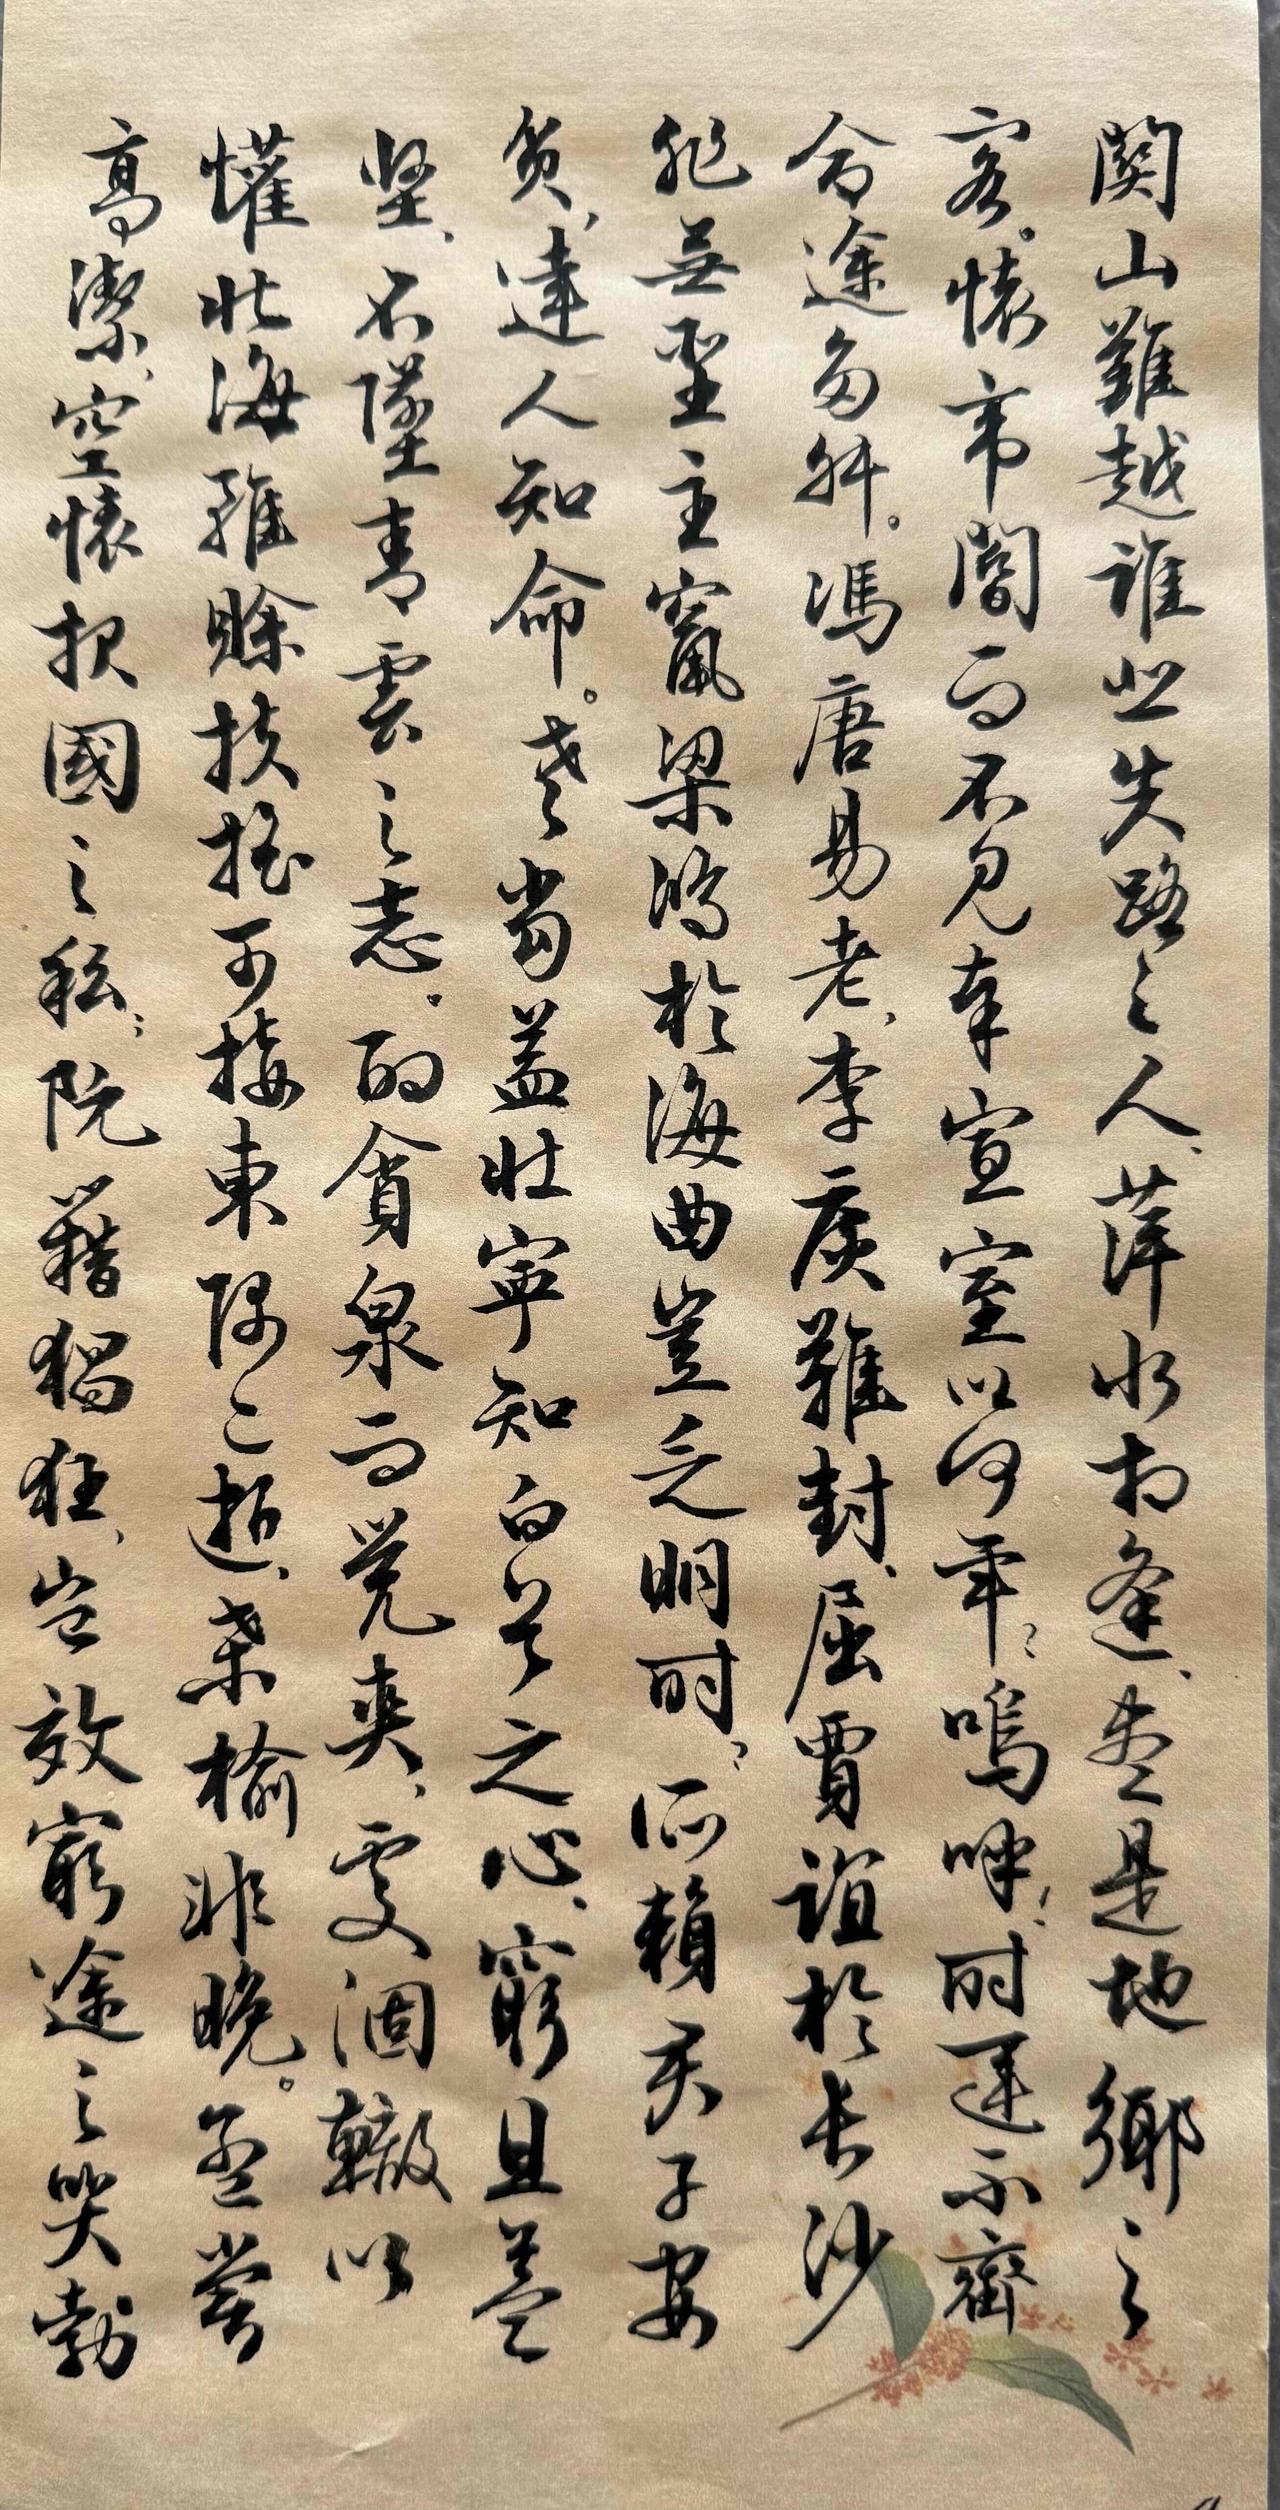 關山難越誰悲失路之人、萍水相逢、盡是他鄉之
客。懷帝閽而不見奉宣室以何年？嗚呼！時運不齊
命途多舛。馮唐易老、李廣難封、屈賈誼於長沙
非無聖主竄梁鴻於海曲豈乏明時？所賴君子安
貧、達人知命。老當益壯寧知白首之心、窮且益
堅、不墜青雲之志。酌貪泉而覺爽、處涸轍以
懽北海雖賒扶搖可接東隅已逝、桑榆非晚。孟嘗
高潔、空懷報國之私；阮籍猖狂、豈效窮途之哭勃